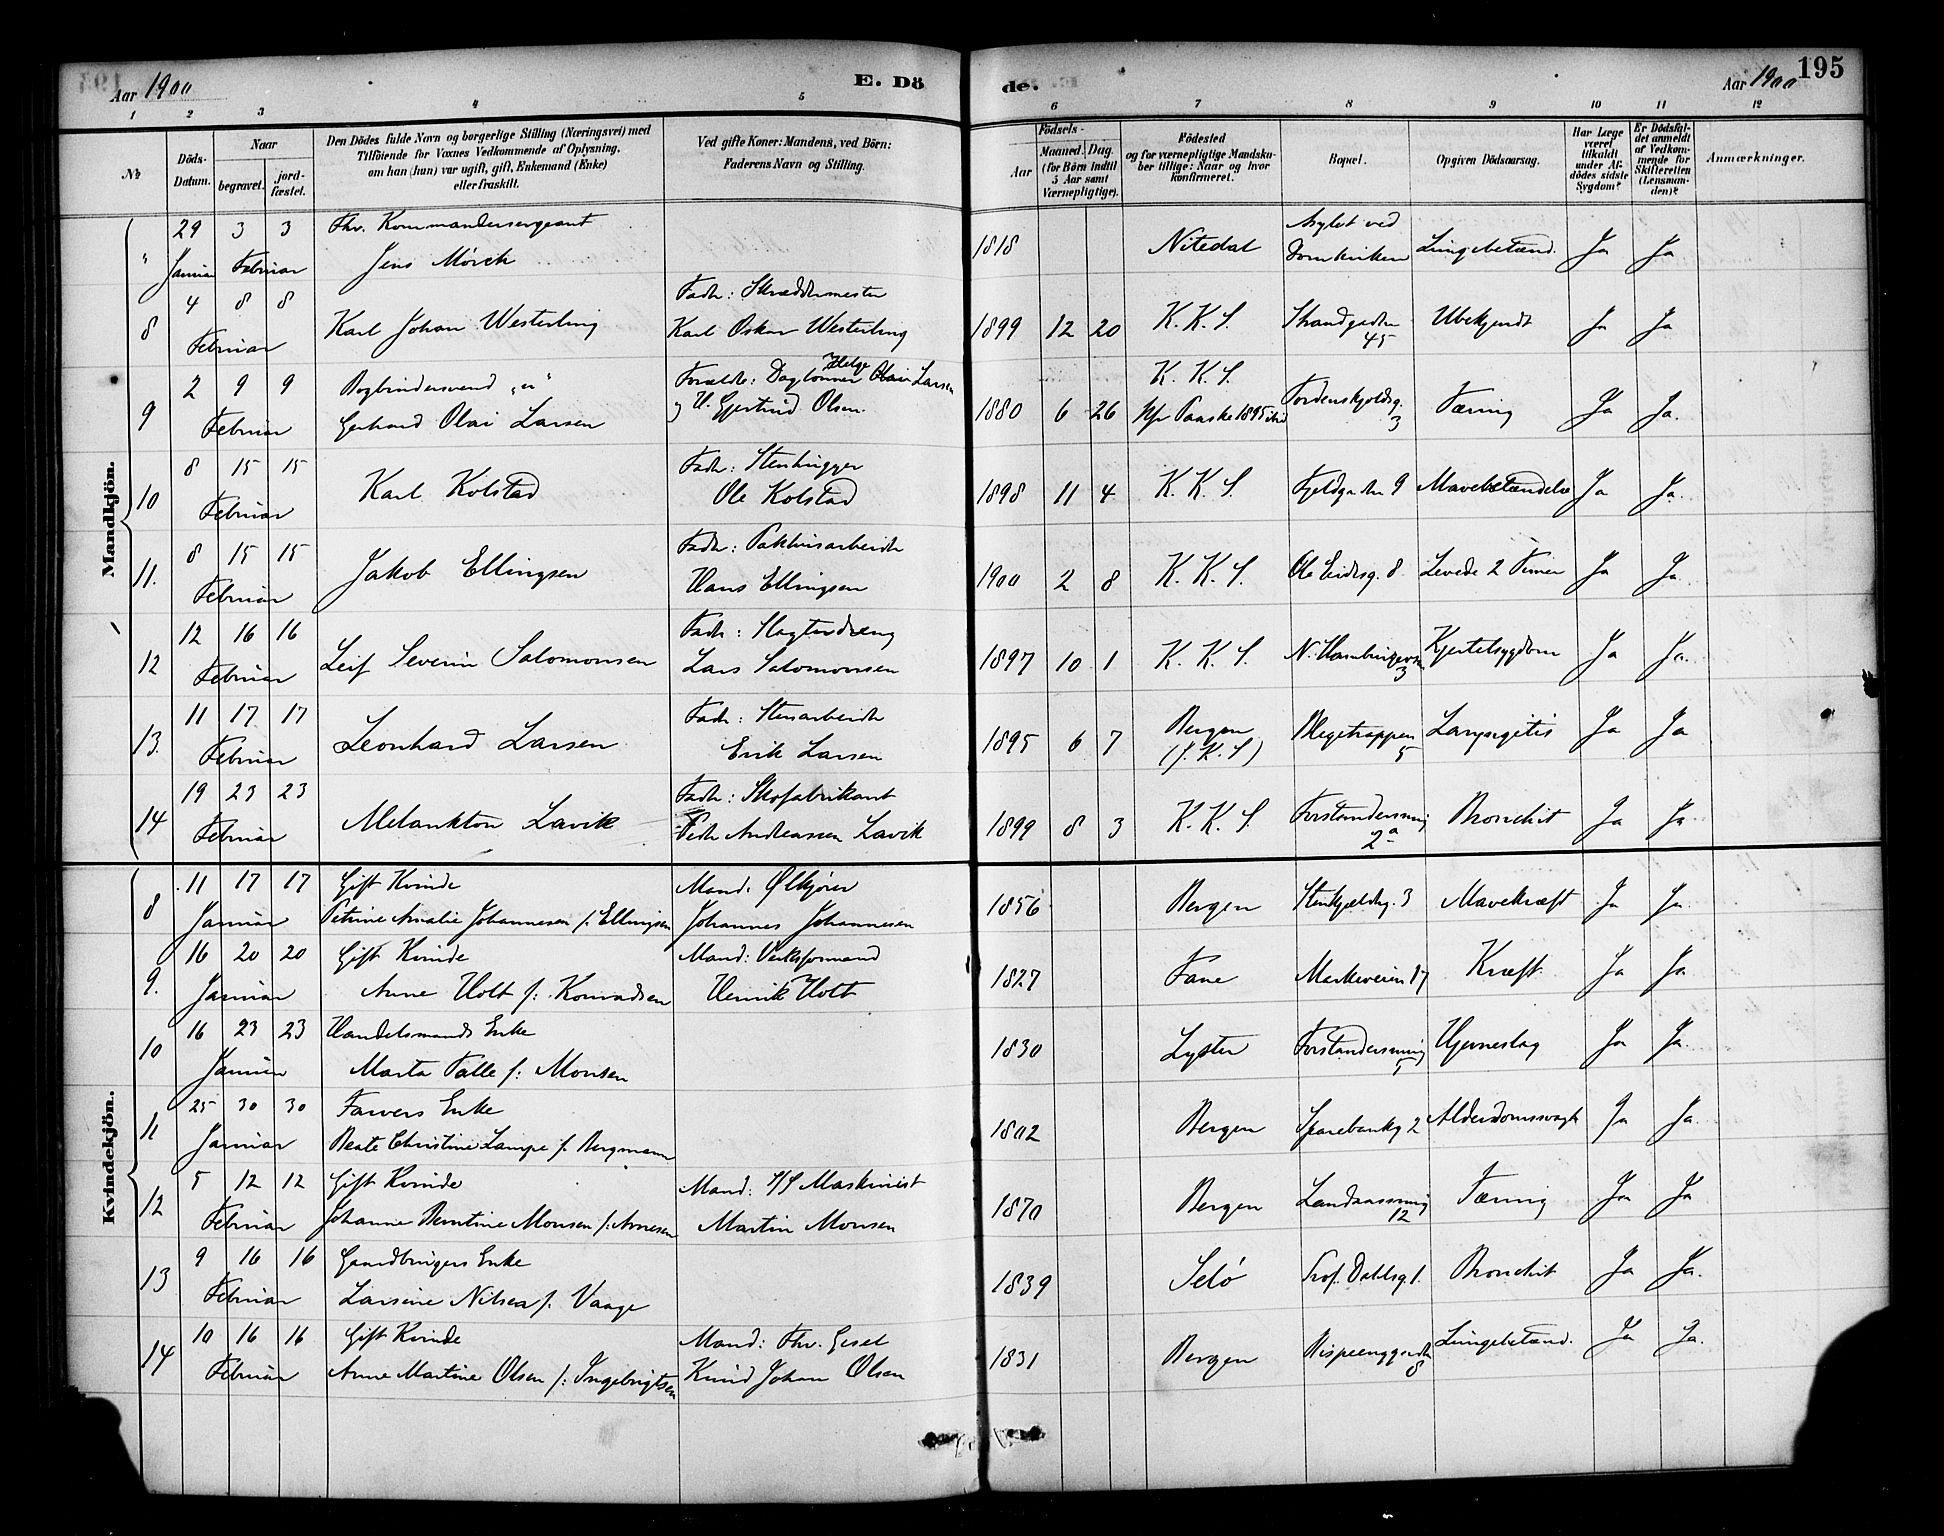 Aar 1900
E. Dö
de.
Aar 1900
195
1 2 3 4 5 6 7 8 9 10 11 12
No
Döds-Datum.
Naar
begravet.
jord-fæstet.
Den Dödes fulde Navn og borgerlige Stilling (Næringsvei) med
Tilföiende for Voxnes Vedkommende af Oplysning,
om han (hun) var ugift, gift, Enkemand (Enke)
eller fraskilt.
Ved gifte Koner: Mandens, ved Börn:
Faderens Navn og Stilling.
Födsels-
Aar
Maaned. Dag.
(for Börn indtil
5 Aar samt
Værnepligtige).
Födested
og for værnepligtige Mandska-
ber tillige: Naar og hvor
konfirmeret.
Bopæl.
Opgiven Dödsaarsag.
Har Læge
været
tilkaldt
under Af-
dödes sidste
Sygdom?
Er Dödsfal-
det anmeldt
af Vedkom-
mende for
Skifteretten
(Lensman-
den)?
Anmærkninger.
Mandkjön.
" 29 3 3 Fhv. Kommandersergeant
Januar Februar Jens Mörch
1818 Nitedal Asylet ved Domkirken Lungebetænd. Ja Ja
8 4 8 8 Februar Karl Johan Westerling
Fader: Skræddermester
Karl Oskar Westerling
1899 12 20 K. K. S. Strandgaden 45 Ubekjendt Ja Ja
9 2 9 9 Februar Bogbindersvend "u"
Gerhard Olai Larsen
Forældre: Daglönner Helge Olai Larsen
og H. Gjertrud Olsen.
1880 6 26 K. K. S.
Kfr Paaske 1895 ibid Tordenskjoldsg. 3 Tæring Ja Ja.
10 8 15 15 Februar Karl Kolstad
Fader: Stenhugger
Ole Kolstad
1898 11 4 K. K. S. Fjeldgaden 9 Mavebetændelse Ja Ja.
11. 8 15 15 Februar Jakob Ellingsen
Fader: Pakhusarbeider
Hans Ellingsen
1900 2 8 K. K. S. Ole Irgensg. 8 Levede 2 Timer Ja Ja.
12 12 16 16 Februar Leif Severin Salomonsen
Fader: Slagterdreng
Lars Salomonsen
1897 10 1 K. K. S. 3 Kjertelsygdom Ja Ja.
13. 11 17 17 Februar Leonhard Larsen
Fader: Stenarbeider
Erik Larsen
1895 6 7 Bergen
(J. K. S) 5 Laryngitis Ja Ja
14 19 23 23 Februar Melankton Lavik
Fader: Skofabrikant
Peder Andreassen Lavik
1899 8 3 K. K. S. Forstandersmug 2a Bronchit Ja Ja.
Kvindekjön.
8 11 17 17 Januar Gift Kvinde
Petrine Amalie Johannesen f. Ellingsen
Mand: Ølkjörer
Johannes Johannesen
1856 Bergen Stenkjelderg. 3 Mavekræft Ja Ja.
9. 16 20 20 Januar Gift Kvinde
Anne Holt f: Konradsen
Mand: Verksformand
Henrik Holt
1827 Fane Markeveien 17 Kræft Ja Ja.
10 16 23 23 Januar Handelsmands Enke
Marta Talle f: Monsen
1830 Lyster Forstandersmug 5 Hjerneslag Ja Ja.
11 25 30 30 Januar Farvers Enke
Beate Christine Lampe f. Bergmann
1802 Bergen Sparebankg 2 Alderdomssvagh Ja Ja.
12 5 12 12 Februar Gift Kvinde
Johanne Berntine Monsen f: Arnesen
Mand: S/S Maskinist
Martin Monsen
1870 Bergen Landaassmug 12 Tæring Ja Ja
13 9 16 16 Februar Gaardbrugers Enke
Larsine Nilsen f. Vaage
1839 Selö Prof. Dahlsg 1. Bronchit Ja Ja.
14 10 16 16 Februar Gift Kvinde
Anne Martine Olsen f: Ingebrigtsen
Mand: Fhv. Gesel
Knud Johan Olsen
1831 Bergen Bispeenggaden 8 Lungebetænd. Ja Ja.